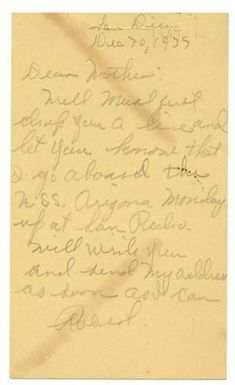 San Diego
Dec 30, 1939
Dear Mother:
Well Must just
drop you a line and
let you know that
I go aboard the
USS. Arizona Monday
up at San Pedro.
Will write you
and send my address
as soon as I can
Robert.